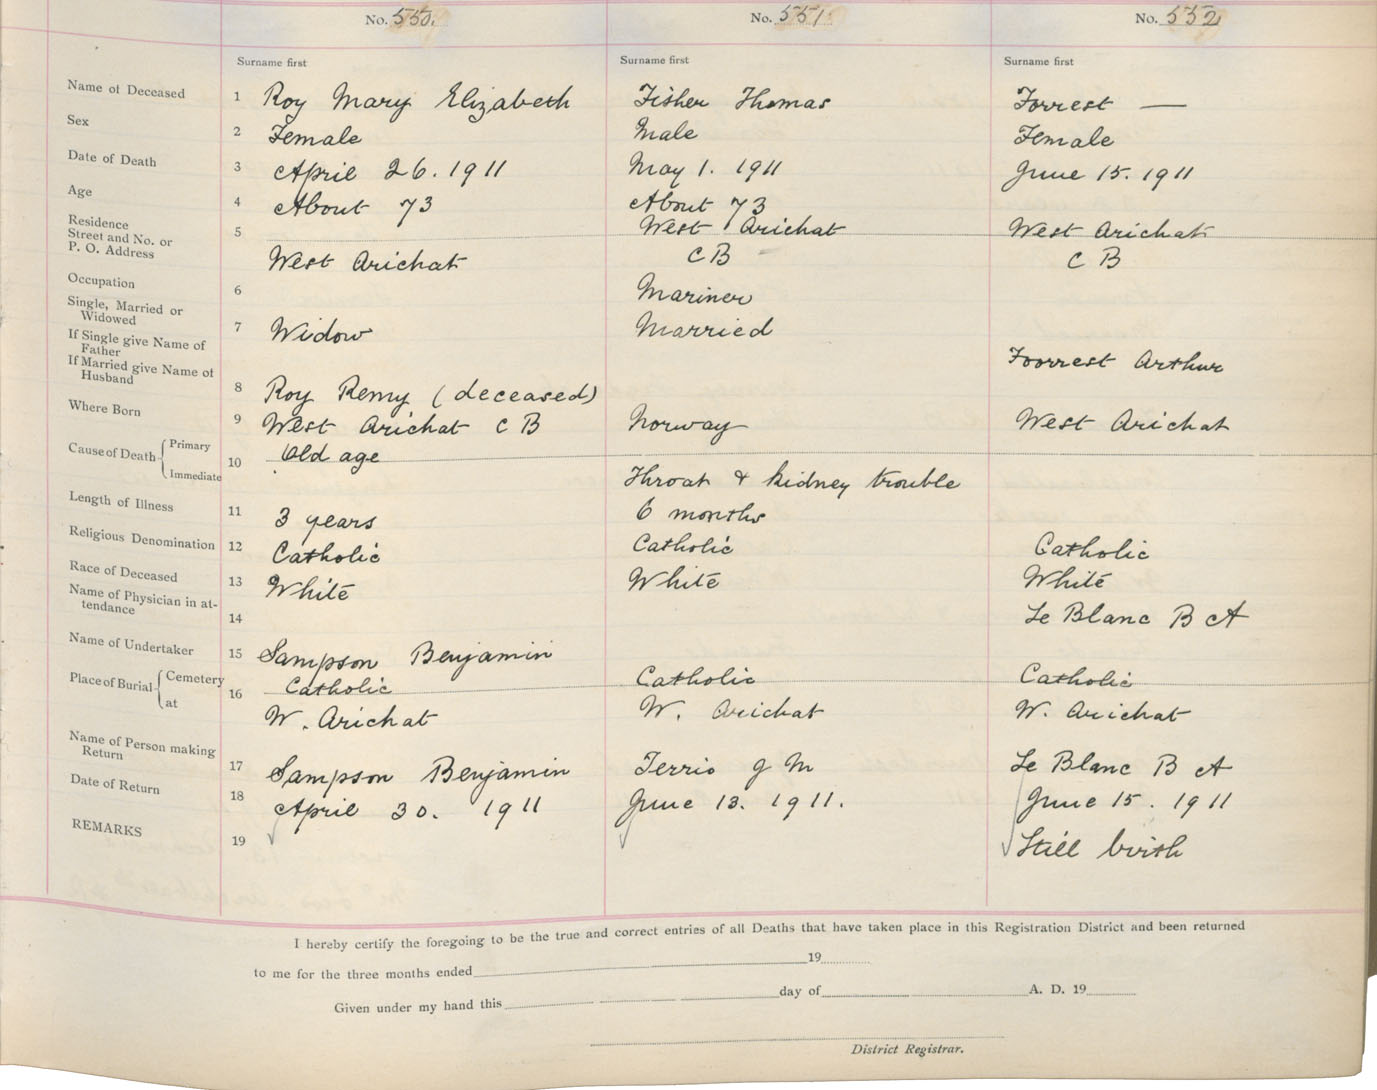 No. 550. No. 551 No. 552
Surname first Surname first Surname first
Name of Deceased 1 Roy Mary Elizabeth Fisher Thomas Forrest —
Sex 2 Female Male Female
Date of Death 3 April 26. 1911 May 1. 1911 June 15. 1911
Age 4 About 73 About 73
Residence
Street and No. or 5 West Arichat West Arichat
P. O. Address West Arichat C B C B
Occupation 6 Mariner
Single, Married or
Widowed 7 Widow Married
If Single give Name of
Father Forrest Arthur
If Married give Name of
Husband 8 Roy Remy (deceased)
Where Born 9 West Arichat C B Norway West Arichat
Cause of Death Primary 10 Old age
Immediate Throat & kidney trouble
Length of Illness 11 3 years 6 months
Religious Denomination 12 Catholic Catholic Catholic
Race of Deceased 13 White White White
Name of Physician in at-
tendance 14 Le Blanc B A
Name of Undertaker 15 Sampson Benjamin
Place of Burial Cemetery 16 Catholic Catholic Catholic
at W. Arichat W. Arichat W. Arichat
Name of Person making
Return 17 Sampson Benjamin Terrio J M Le Blanc B A
Date of Return 18 April 30. 1911 June 13. 1911. June 15. 1911
REMARKS 19 Still birth
I hereby certify the foregoing to be the true and correct entries of all Deaths that have taken place in this Registration District and been returned
to me for the three months ended 19
Given under my hand this day of A. D. 19
District Registrar.